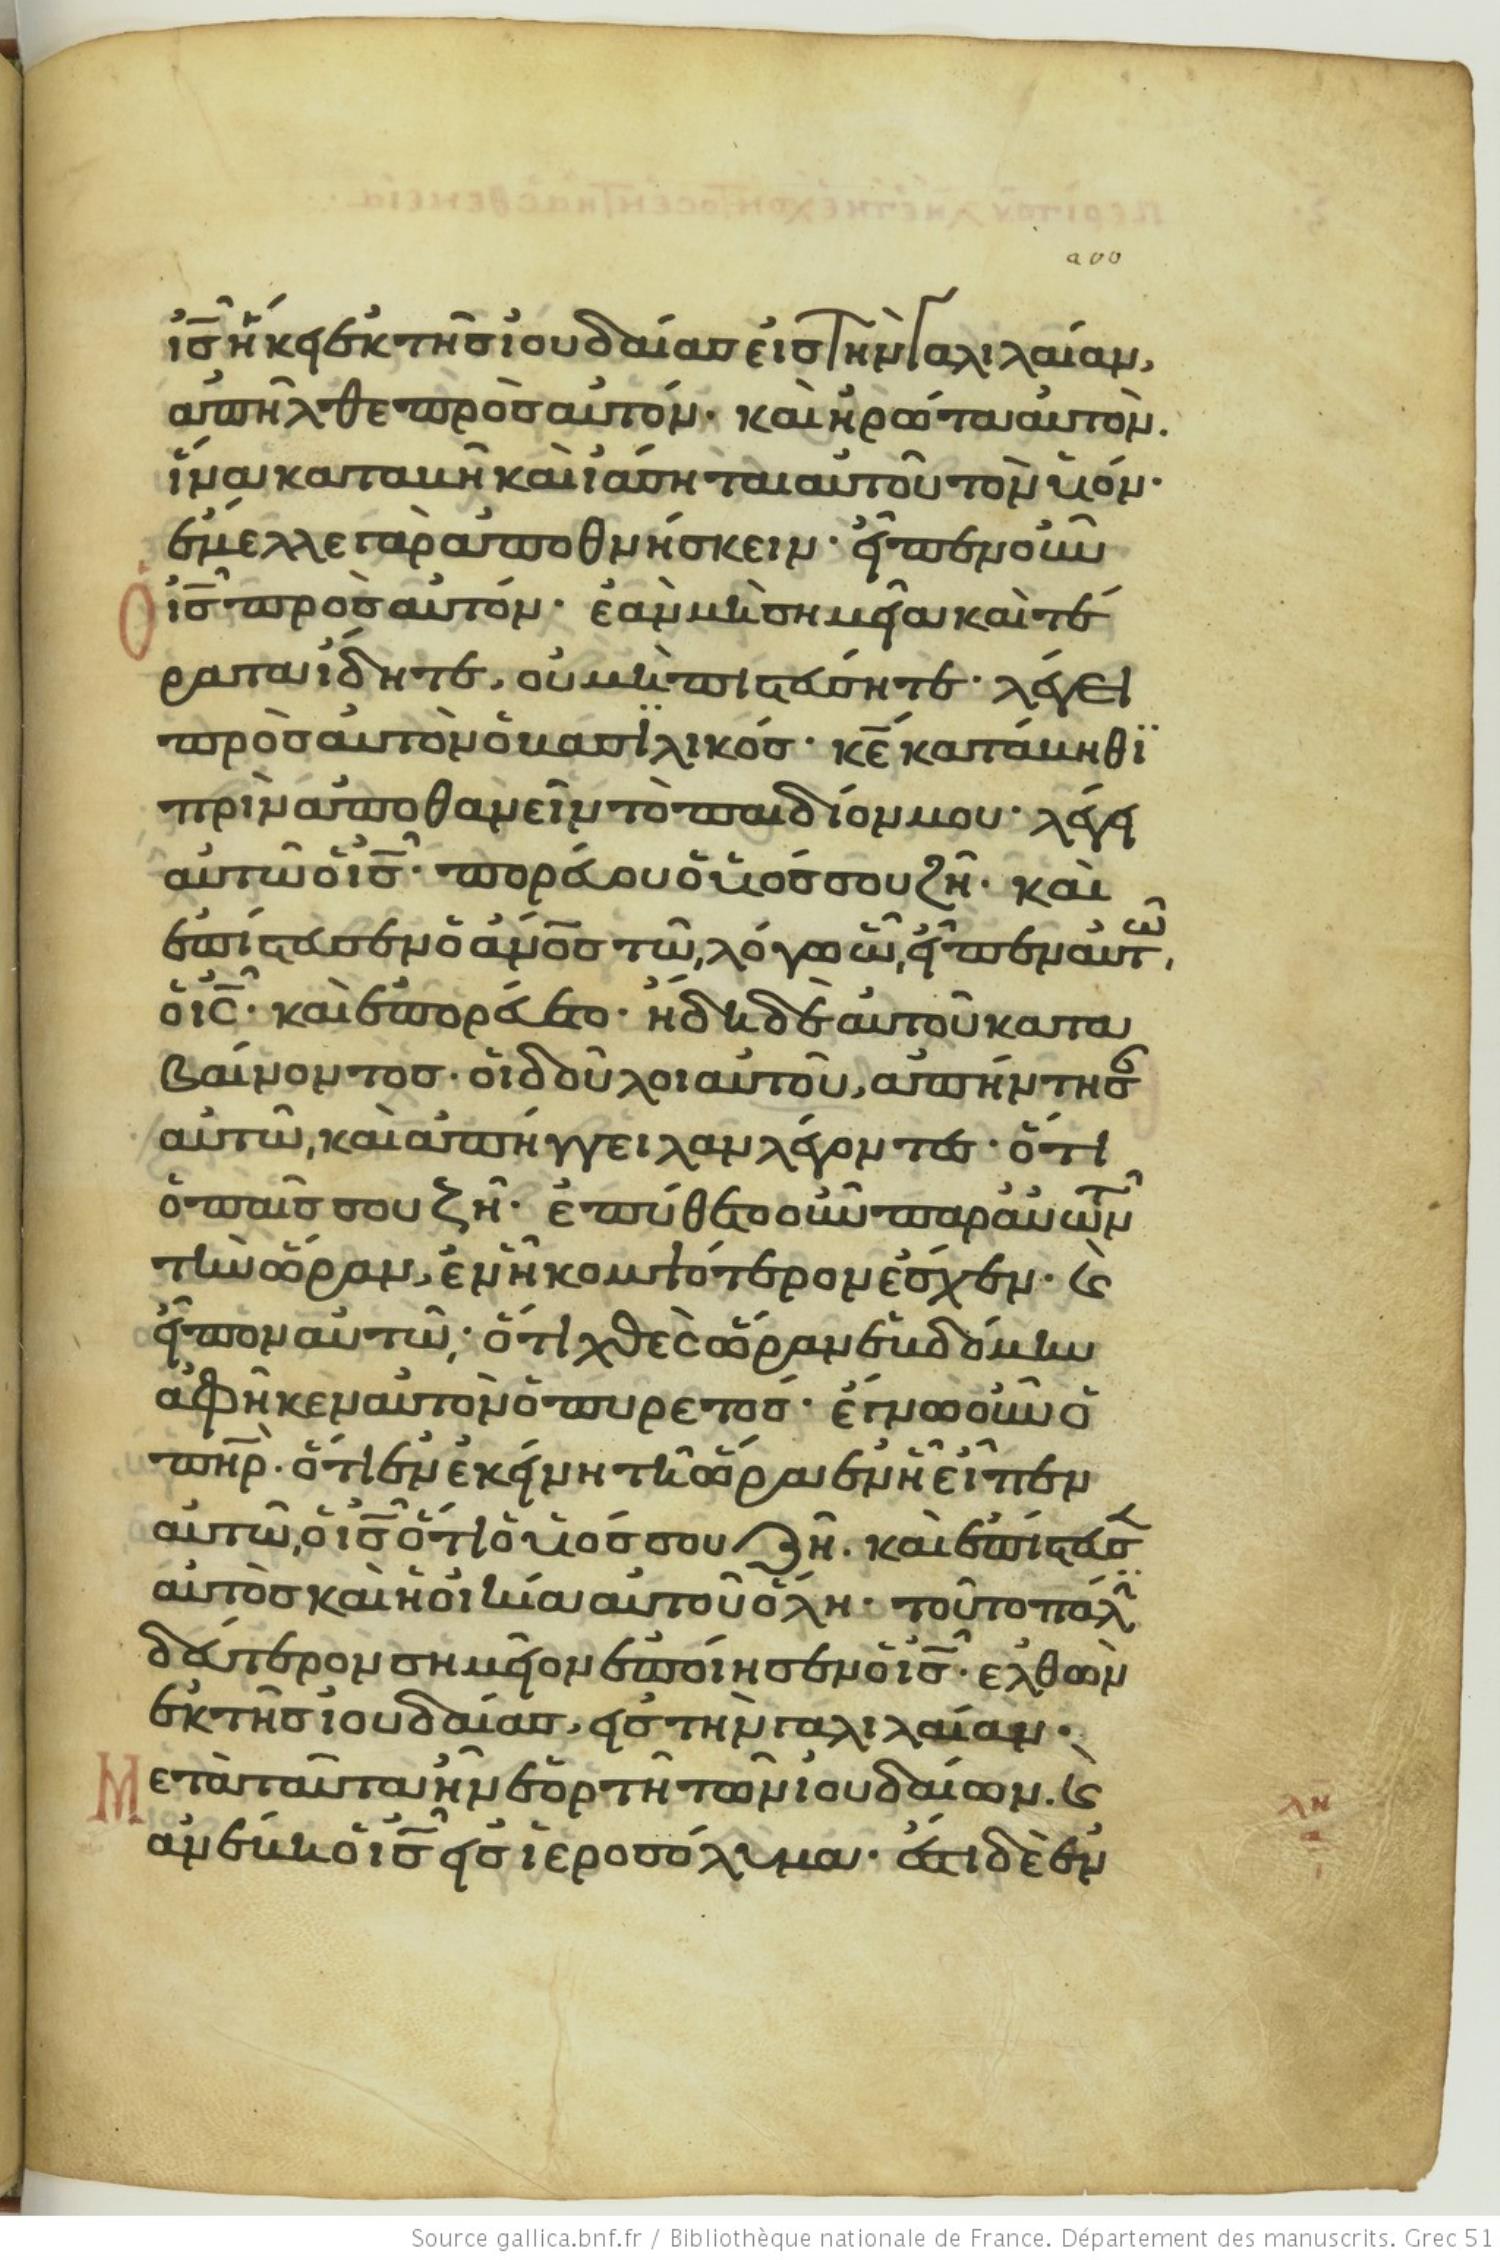 200
ἰς̅ ἥκει ἐκ τῆς ἰουδαίας εἰς τὴν γαλιλαίαν,
ἀπῆλθε πρὸς αὐτόν· καὶ ἠρώτα αὐτὸν.
ἵνα καταβῆ καὶ ἰάσηται αὐτοῦ τὸν ὑιόν·
ἔμελλε γὰρ ἀποθνήσκειν· εἶπεν οὖν
ὁ ἰς̅ πρὸς αὐτόν· ἐὰν μὴ σημεῖα καὶ τέ
ρατα ἴδητε, οὐ μὴ πιστεύσητε· λέγει
πρὸς αὐτὸν ὁ βασϊλικός· κε̅ κατάβηθϊ
πρὶν ἀποθανεῖν τὸ παιδίον μου· λέγει
αὐτῶ ὁ ἰς̅· πορεύου ὁ ὑιός σου ζῆ· καὶ
ἐπίστευσεν ὁ ἄνο̅ς τῶ, λόγω ὧ, εἶπεν αὐτῶ,
ὁ ις̅· καὶ ἐπορεύετο· ἤδη δὲ αὐτοῦ κατα
βαίνοντος· οἱ δοῦλοι αὐτοῦ, ἀπήντησ
αὐτῶ, καὶ ἀπήγγειλαν λέγοντες· ὅτι
ὁ παῖς σου ζῆ· ἐπύθετο οὖν παρ' αὐτῶν
τὴν ὥραν, ἐν ῆ κομψότερον ἔσχεν· ϛ̀
εἶπον αὐτῶ,· ὅτι χθὲς ὥραν ἑβδόμην
ἀφῆκεν αὐτὸν ὁ πυρετός· ἔγνω οὖν ὁ
πη̅ρ. ὅτι ἐν ἐκείνη τῆ ὥρα ἐν ῇ εἶπεν
αὐτῶ, ὁ ἰς̅ ὅτι ὁ ὑιός σου ζῆ. καὶ ἐπίστευσ
αὐτὸς καὶ ἡ οἰκία αὐτοῦ ὅλη· τοῦτο πάλϊ
δεύτερον σημεῖον ἐποίησεν ὁ ἰς̅· ἐλθὼν
ἐκ τῆς ἰουδαίας, εἰς τὴν γαλιλαίαν·
Μετὰ ταῦτα ἦν ἑορτὴ τῶν ἰουδαίων. ϛ̀
ἀνέβη ὁ ἰς̅ εἰς ἱεροσόλυμα· ἔστι δὲ ἐν
λη
α
ι
Source gallica.bnf.fr / Bibliothèque nationale de France. Département des manuscrits. Grec 51